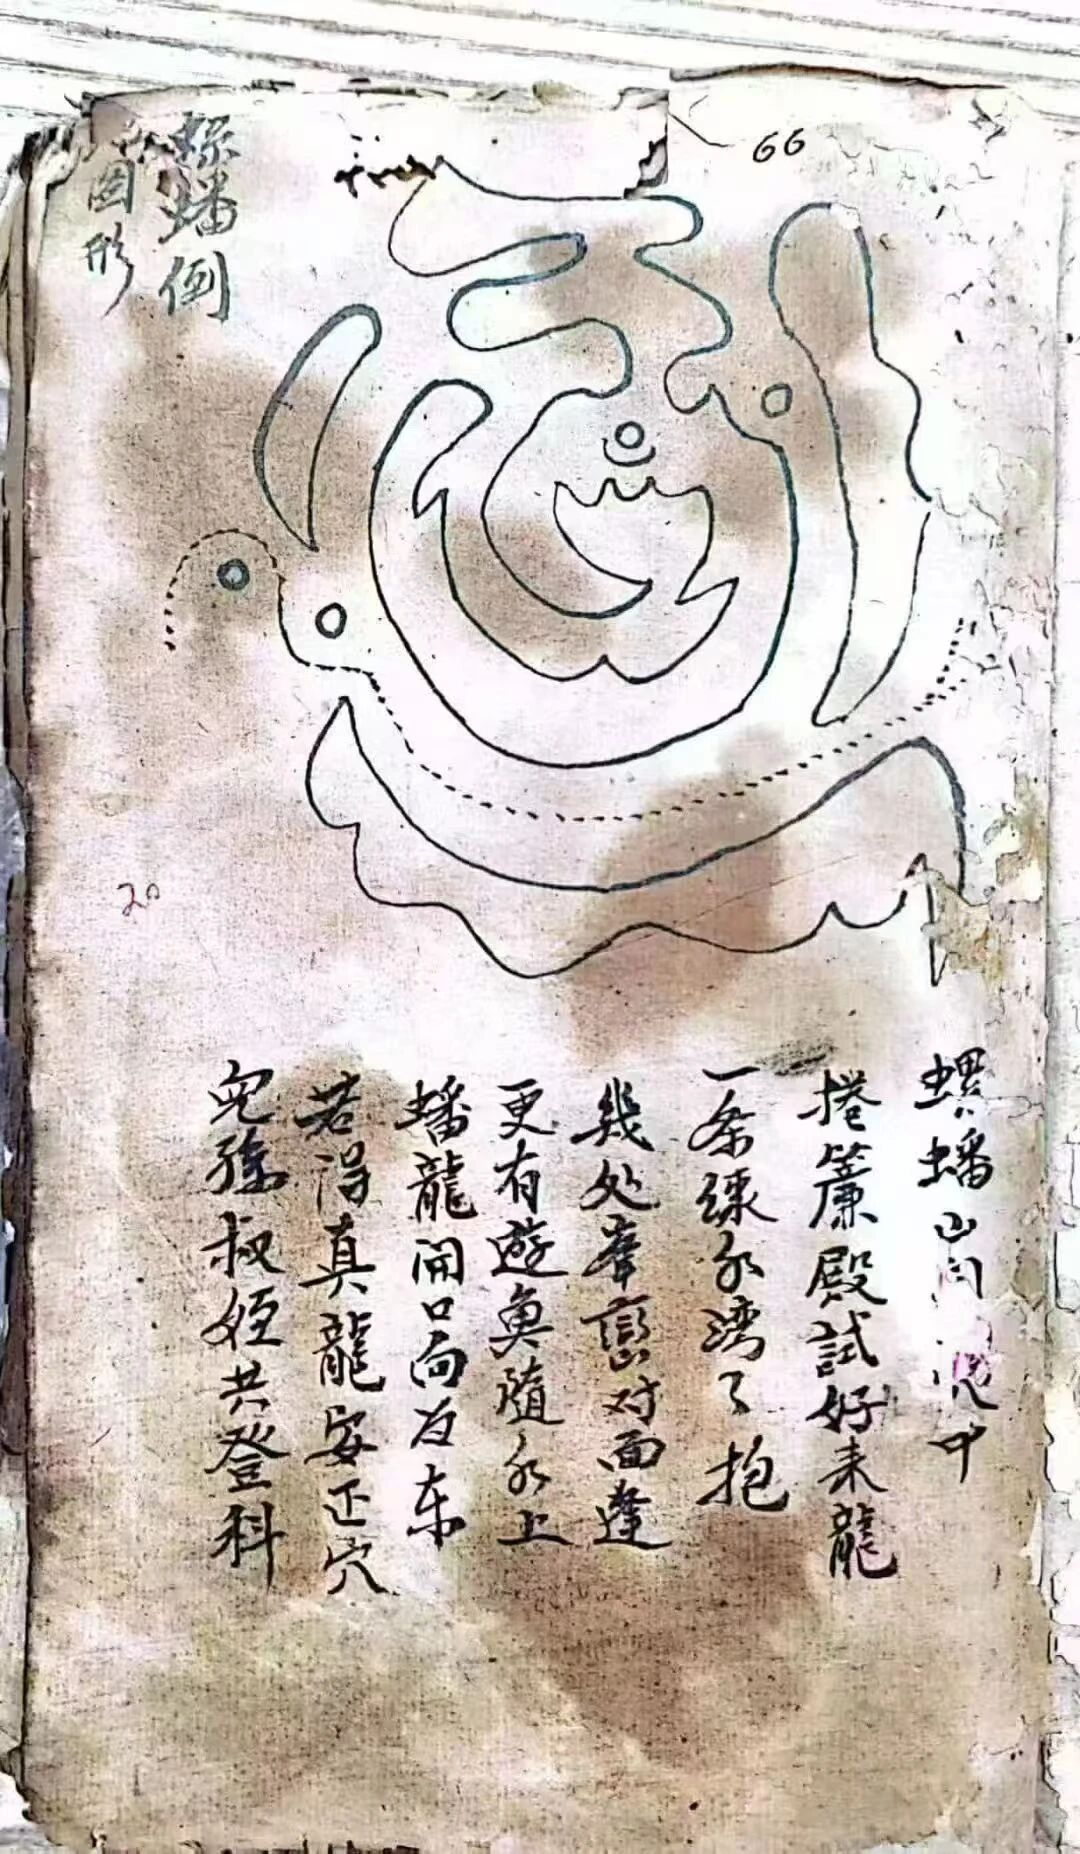 66
螺蟠倒
圖形
20
螺蟠山 中
捲簾殿試好来龍
一条綠水湾了抱
幾处峯巒对面逢
更有遊魚随水上
蟠龍開口向为东
若得真龍安正穴
兒孫叔姪共登科